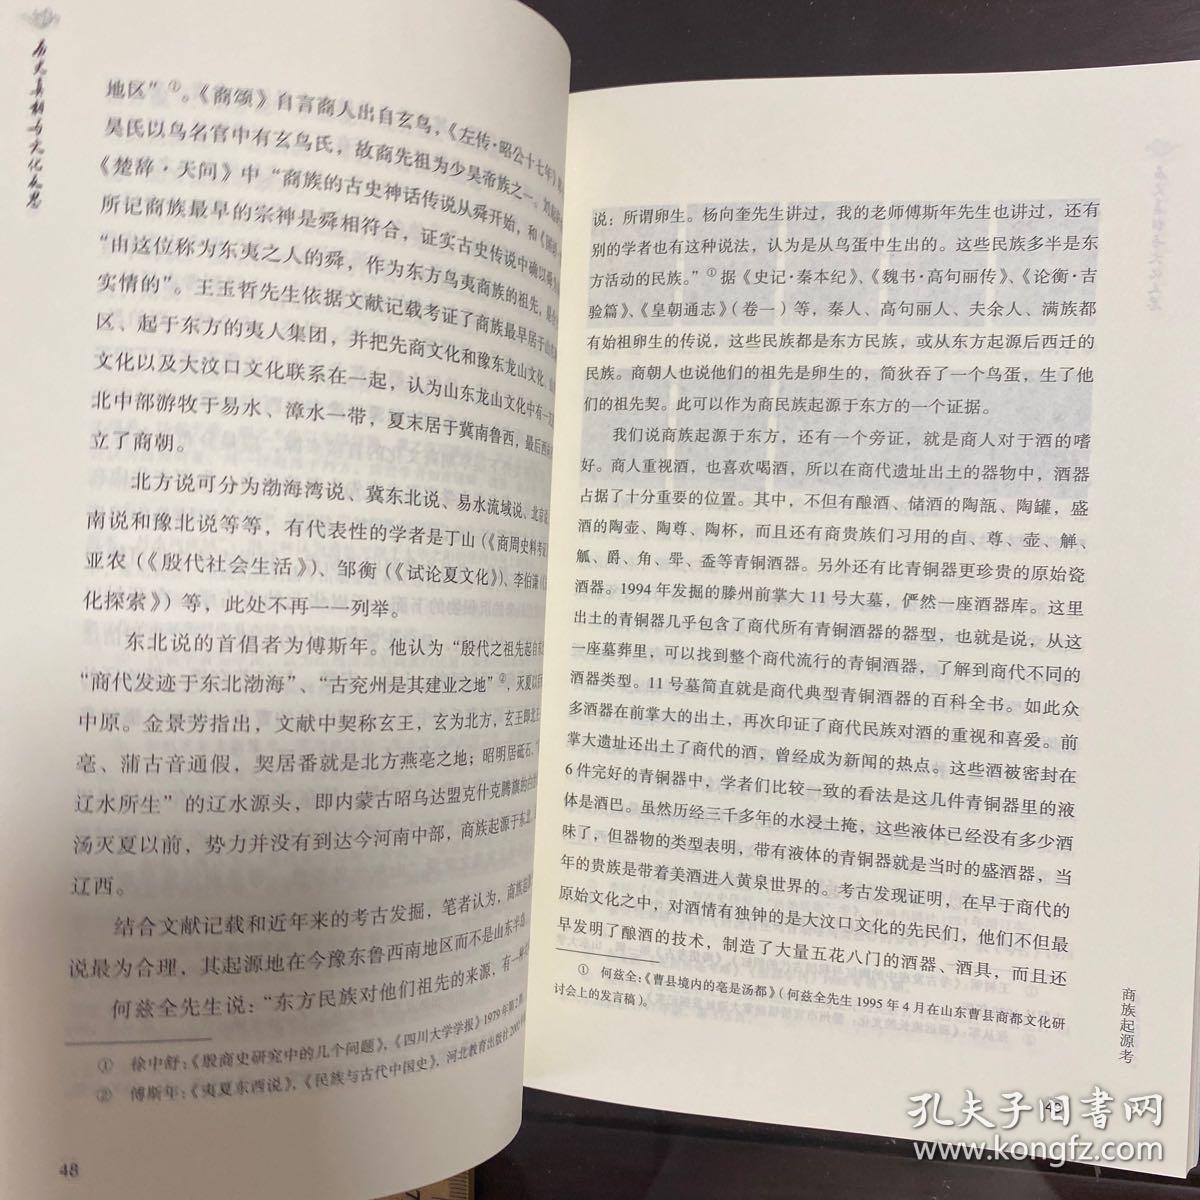 历史真相与文化反思
地区”①。《商颂》自言商人出自玄鸟，《左传·昭公十七年》
昊氏以鸟名官中有玄鸟氏，故商先祖为少昊帝族之一。
《楚辞·天问》中“商族的古史神话传说从舜开始，和《国语
所记商族最早的宗神是舜相符合，证实古史传说中确以
“由这位称为东夷之人的舜，作为东方鸟夷商族的祖先，
实情的”。王玉哲先生依据文献记载考证了商族最早居于山东
区、起于东方的夷人集团，并把先商文化和豫东龙山文化、
文化以及大汶口文化联系在一起，认为山东龙山文化中有一
北中部游牧于易水、漳水一带，夏末居于冀南鲁西，最后西
立了商朝。
北方说可分为渤海湾说、冀东北说、易水流域说、北京说
南说和豫北说等等，有代表性的学者是丁山（《商周史料考证》
亚农（《殷代社会生活》）、邹衡（《试论夏文化》）、李伯谦（
化探索》）等，此处不再一一列举。
东北说的首倡者为傅斯年。他认为“殷代之祖先起自东
“商代发迹于东北渤海”、“古兖州是其建业之地”②，灭夏以
中原。金景芳指出，文献中契称玄王，玄为北方，玄王即北
亳、蒲古音通假，契居番就是北方燕亳之地；昭明居砥石，
辽水所生”的辽水源头，即内蒙古昭乌达盟克什克腾旗的白
汤灭夏以前，势力并没有到达今河南中部，商族起源于东北、
辽西。
结合文献记载和近年来的考古发掘，笔者认为，商族
说最为合理，其起源地在今豫东鲁西南地区而不是山东半岛。
何兹全先生说：“东方民族对他们祖先的来源，有一种
① 徐中舒：《殷商史研究中的几个问题》，《四川大学学报》1979年第2期
② 傅斯年：《夷夏东西说》，《民族与古代中国史》，河北教育出版社2002
48
说：所谓卵生。杨向奎先生讲过，我的老师傅斯年先生也讲过，还有
别的学者也有这种说法，认为是从鸟蛋中生出的。这些民族多半是东
方活动的民族。”①据《史记·秦本纪》、《魏书·高句丽传》、《论衡·吉
验篇》、《皇朝通志》（卷一）等，秦人、高句丽人、夫余人、满族都
有始祖卵生的传说，这些民族都是东方民族，或从东方起源后西迁的
民族。商朝人也说他们的祖先是卵生的，简狄吞了一个鸟蛋，生了他
们的祖先契。此可以作为商民族起源于东方的一个证据。
我们说商族起源于东方，还有一个旁证，就是商人对于酒的嗜
好。商人重视酒，也喜欢喝酒，所以在商代遗址出土的器物中，酒器
占据了十分重要的位置。其中，不但有酿酒、储酒的陶瓿、陶罐，盛
酒的陶壶、陶尊、陶杯，而且还有商贵族们习用的卣、尊、壶、觯、
觚、爵、角、斝、盉等青铜酒器。另外还有比青铜器更珍贵的原始瓷
酒器。1994年发掘的滕州前掌大11号大墓，俨然一座酒器库。这里
出土的青铜器几乎包含了商代所有青铜酒器的器型，也就是说，从这
一座墓葬里，可以找到整个商代流行的青铜酒器，了解到商代不同的
酒器类型。11号墓简直就是商代典型青铜酒器的百科全书。如此众
多酒器在前掌大的出土，再次印证了商代民族对酒的重视和喜爱。前
掌大遗址还出土了商代的酒，曾经成为新闻的热点。这些酒被密封在
6件完好的青铜器中，学者们比较一致的看法是这几件青铜器里的液
体是酒巴。虽然历经三千多年的水浸土掩，这些液体已经没有多少酒
味了，但器物的类型表明，带有液体的青铜器就是当时的盛酒器，当
年的贵族是带着美酒进入黄泉世界的。考古发现证明，在早于商代的
原始文化之中，对酒情有独钟的是大汶口文化的先民们，他们不但最
早发明了酿酒的技术，制造了大量五花八门的酒器、酒具，而且还
① 何兹全：《曹县境内的亳是汤都》（何兹全先生1995年4月在山东曹县商都文化研
讨会上的发言稿）。
商族起源考
49
孔夫子旧书网
www.kongfz.com